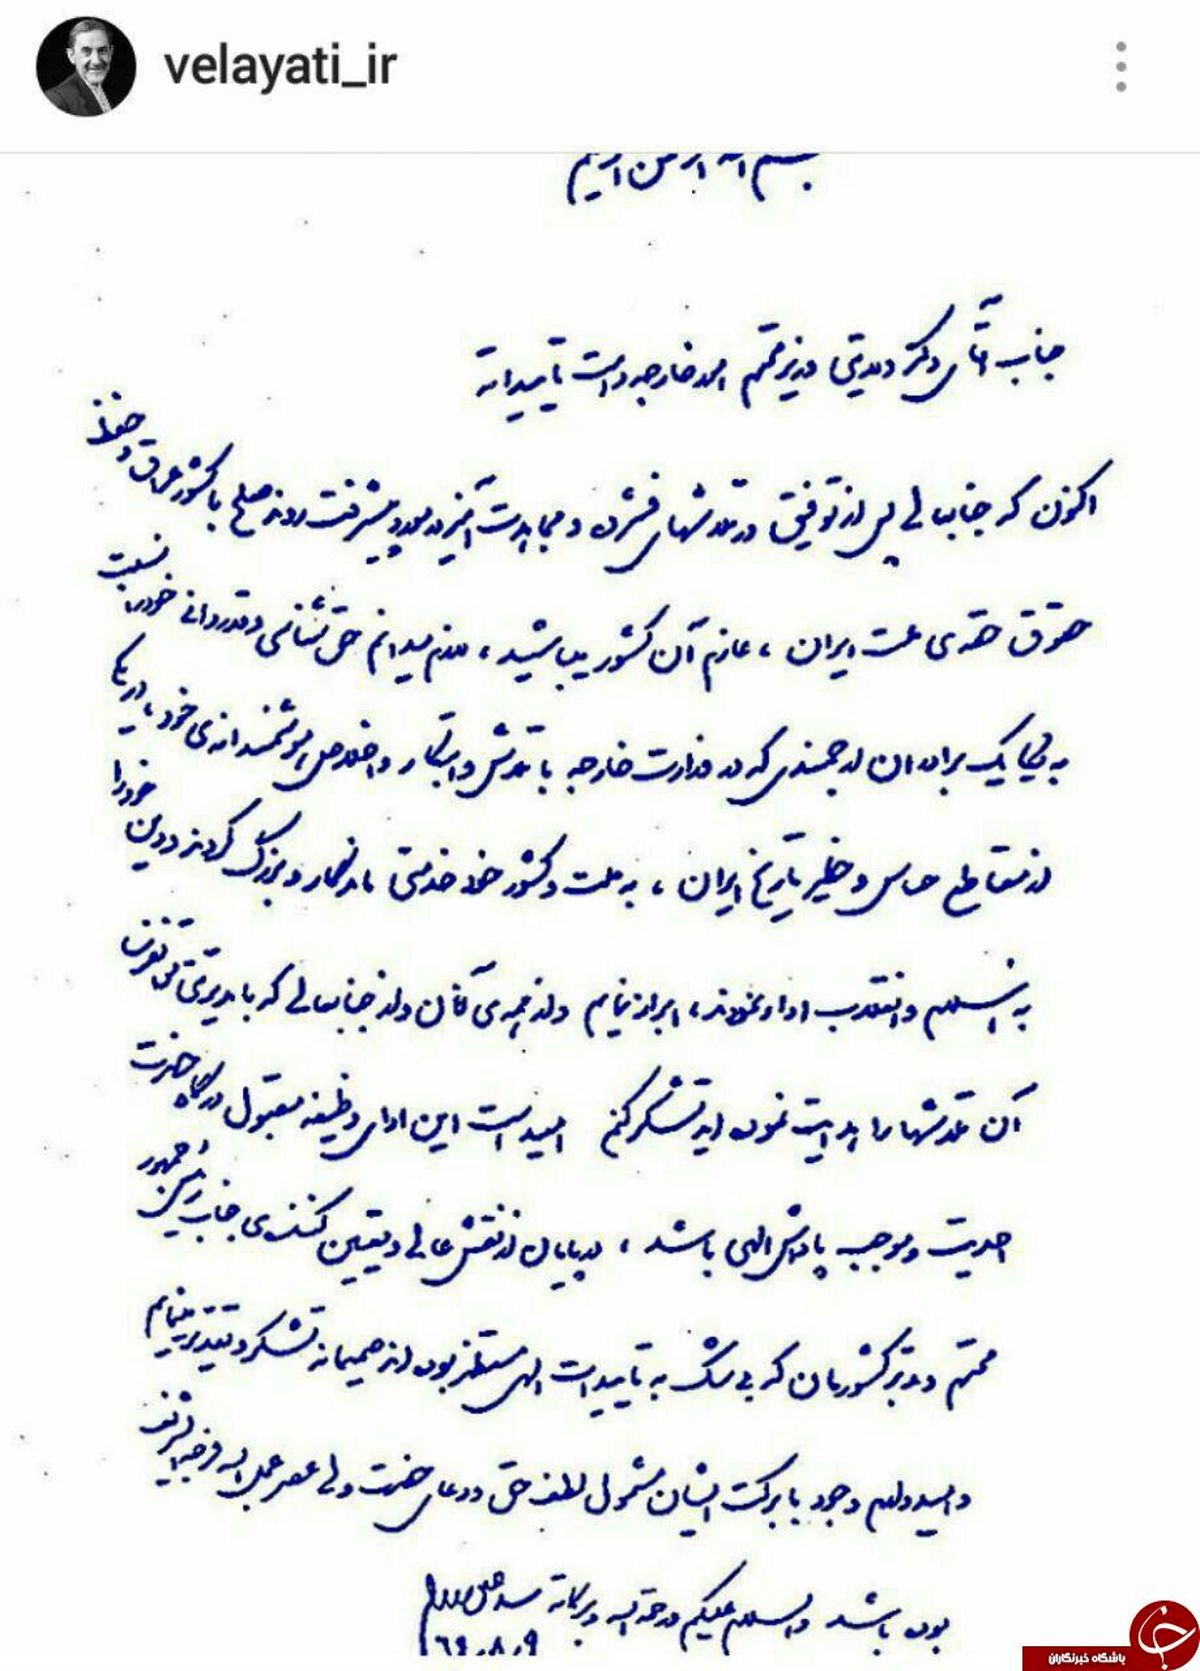 velayati_ir
بسم الله الرحمن الرحیم
جناب آقای دکتر ولایتی وزیر محترم امور خارجه دامت تأییداته
اکنون که جنابعالی پس از توفیق در تلاشهای فشرده و مجاهدت‌آمیز در مورد پیشرفت روند صلح با کشور عراق و حفظ
حقوق حقه‌ی ملت ایران، عازم آن کشور میباشید، لازم میدانم حق‌شناسی و قدردانی خود را نسبت
به یکایک برادران ارجمندی که در وزارت خارجه با تلاش و ابتکار و اخلاص هوشمندانه‌ی خود در یکی
از مقاطع حساس و خطیر تاریخ ایران، به ملت و کشور خود خدمتی ماندگار و بزرگ کردند و دین خود را
به اسلام و انقلاب ادا نمودند، ابراز نمایم و از همه‌ی آنان و از جنابعالی که با مدیریتی توانفرسا
آن تلاشها را هدایت نموده‌اید تشکر کنم امید است این ادای وظیفه مقبول درگاه حضرت
احدیت و موجب پاداش الهی باشد، در پایان از نقش عالی و تعیین کننده‌ی جناب رئیس جمهور
محترم و مدبر کشورمان که بی‌شک به تأییدات الهی مستظهر بوده‌اند صمیمانه تشکر و تقدیر مینمایم
و امیدوارم وجود با برکت ایشان مشمول لطف حق و دعای حضرت ولی عصر عجل الله فرجه الشریف
بوده باشد والسلام علیکم و رحمة الله و برکاته سید علی خامنه‌ای
۶۹.۸.۹
باشگاه خبرنگاران